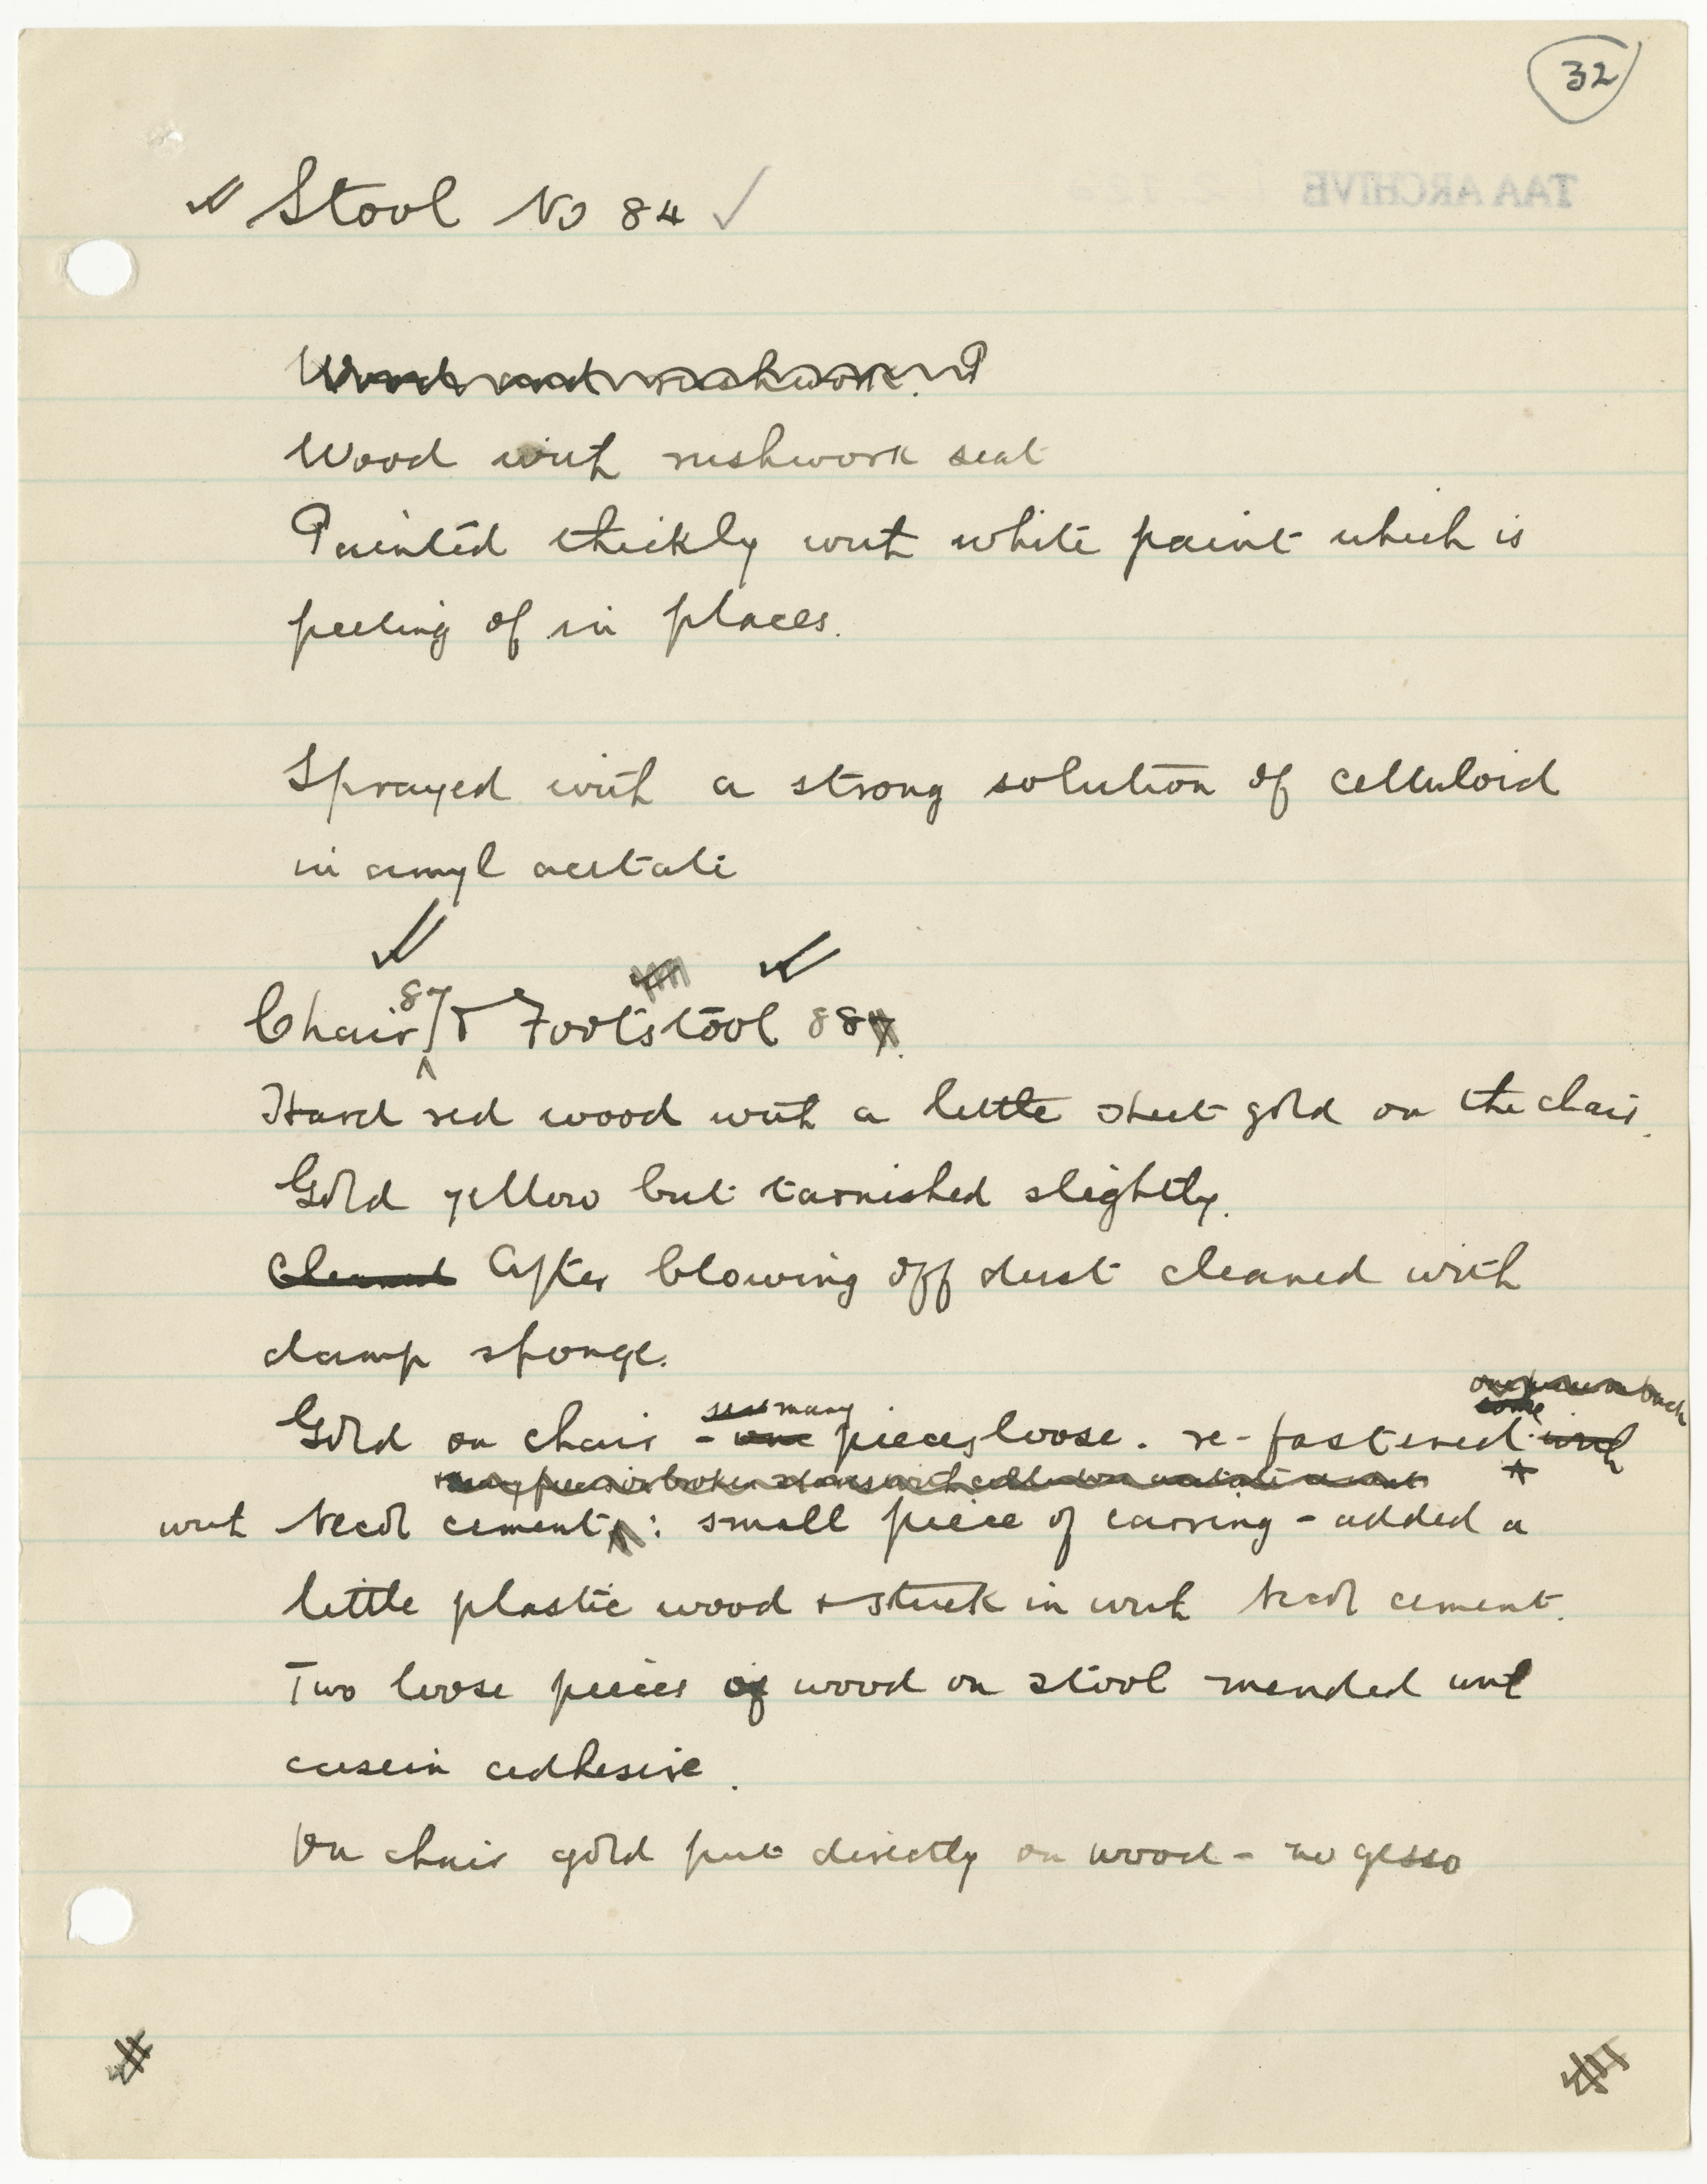 32
TAA ARCHIVE
Stool No 84
Wood and rushwork.
Wood with rushwork seat
Painted thickly with white paint which is
peeling of in places.
Sprayed with a strong solution of celluloid
in amyl acetate
87
Chair & Footstool 88
Hard red wood with a little sheet gold on the chair.
Gold yellow but tarnished slightly.
Cleaned After blowing off dust cleaned with
damp sponge.
many
some
Gold on chair - one pieces loose. re-fastened with
with Necol cement : small piece of carving - added a
little plastic wood + stuck in with Necol cement.
Two loose pieces of wood on stool mended with
casein adhesive.
On chair gold put directly on wood - no gesso